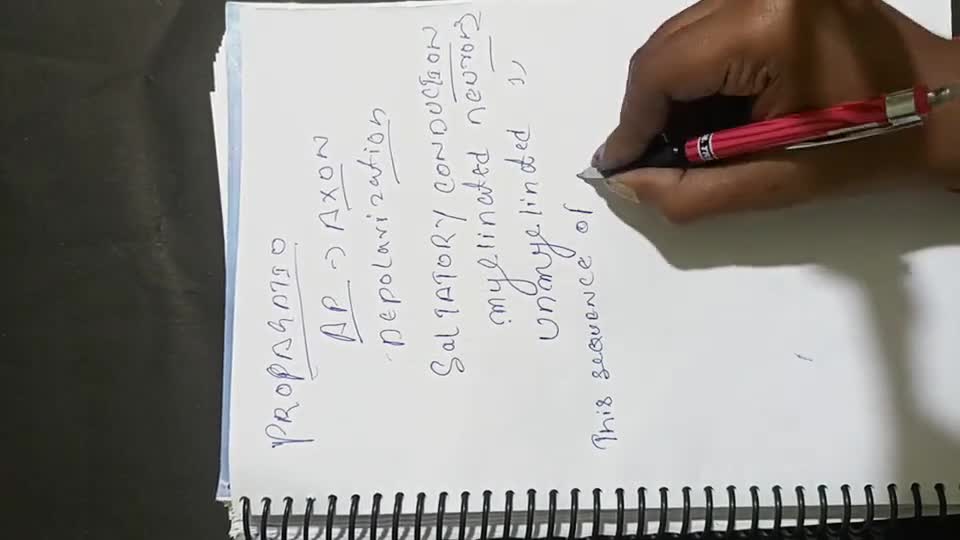 PROPAGATIO
AP -> AXON
DEPOLARIZATION
SALTATORY CONDUCTION
myelinated neurons
unmyelinated ,,
This sequence of